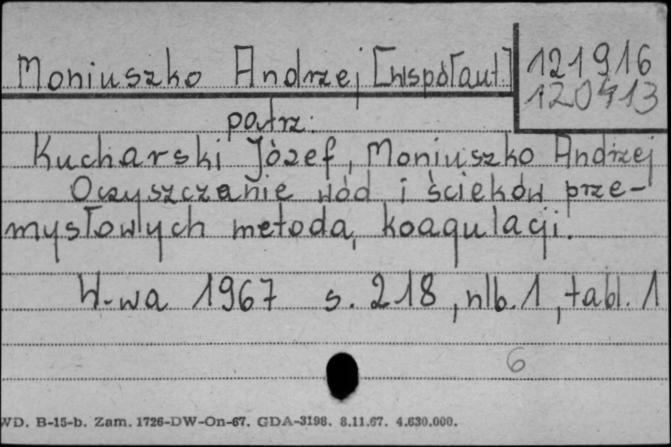 Moniuszko Andrzej [współaut.]
121916
120413
patrz:
Kucharski Józef, Moniuszko Andrzej
Oczyszczanie wód i ścieków prze-
mysłowych metodą koagulacji.
W-wa 1967 s. 218, nlb. 1, tabl. 1
6
WD. B-15-b. Zam. 1726-DW-On-67. GDA-3198. 8.11.67. 4.630.000.